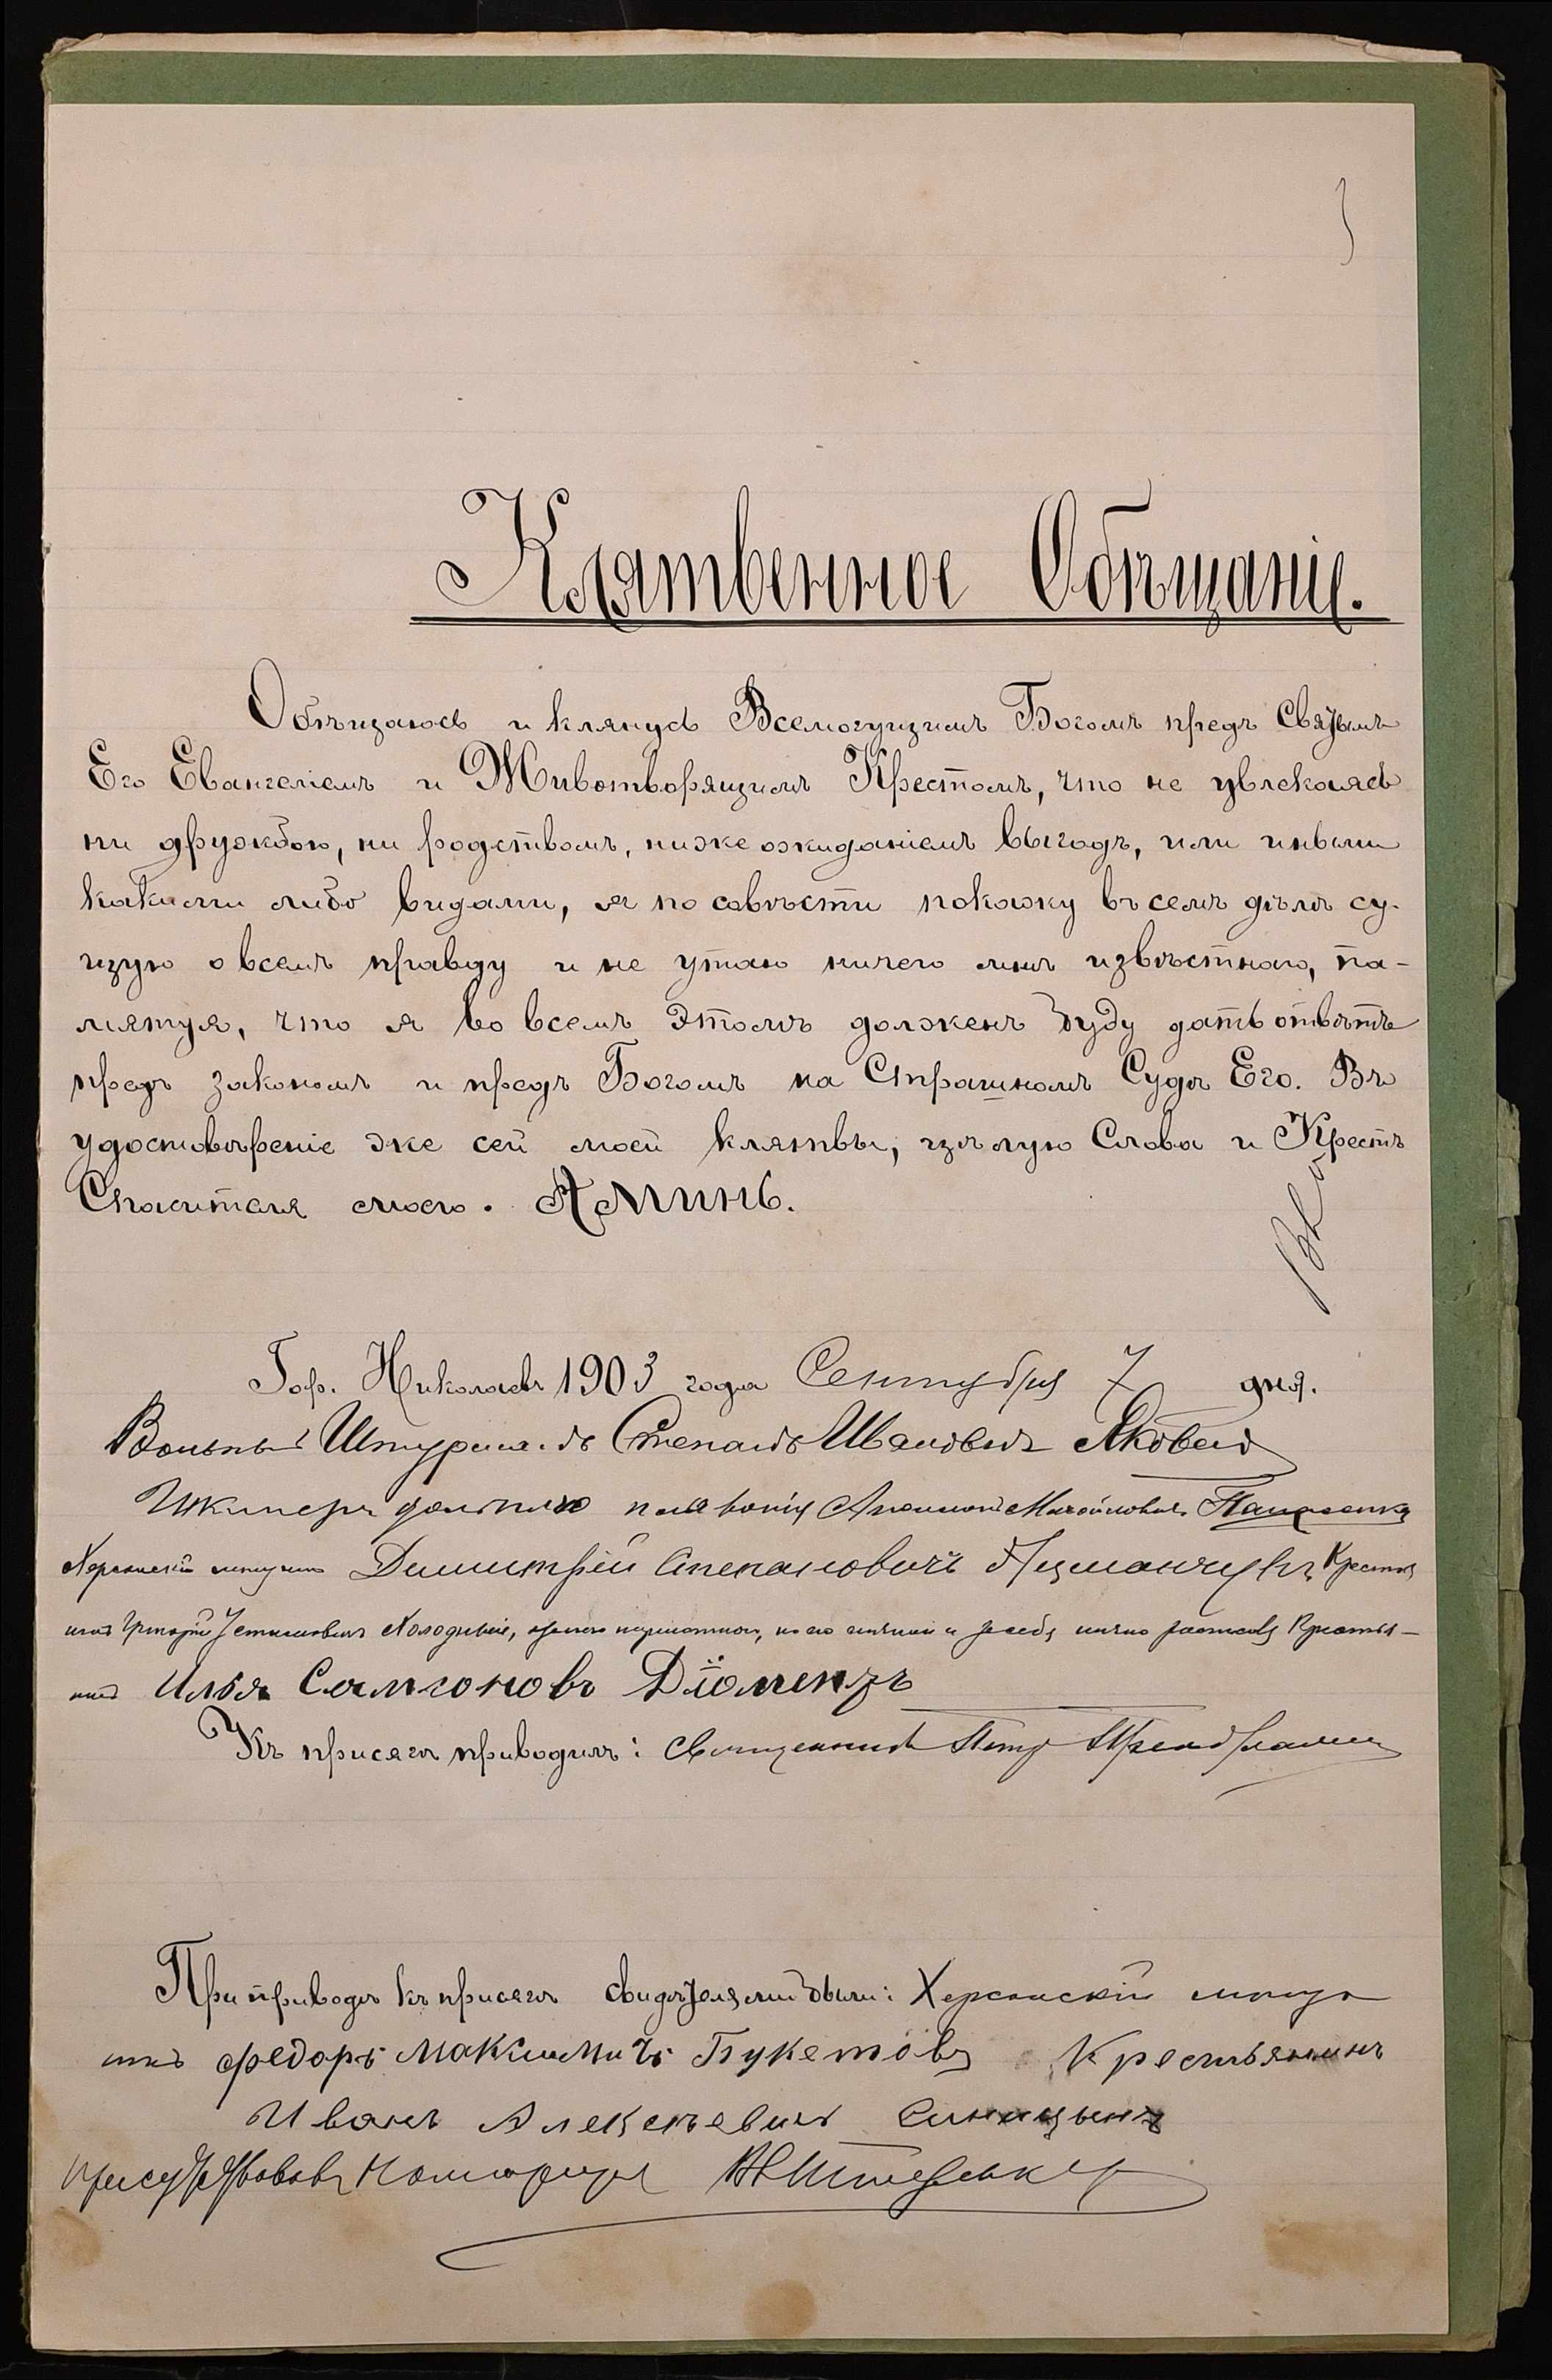 Клятвенное Обѣщаніе.
Обѣщаюсь и клянусь Всемогущимъ Богомъ предъ Святымъ
Его Евангеліемъ и Животворящимъ Крестомъ, что не увлекаясь
ни дружбою, ни родствомъ, ниже ожиданіемъ выгодъ, или иными
какими либо видами, я по совѣсти покажу въ семъ дѣлѣ су-
щую о всемъ правду и не утаю ничего мнѣ извѣстнаго, па-
мятуя, что я во всемъ этомъ долженъ буду дать отвѣтъ
предъ закономъ и предъ Богомъ на Страшномъ Судѣ Его. Въ
удостовѣреніе же сей моей клятвы, цѣлую Слова и Крестъ
Спасителя моего. Аминь.
Гор. Николаевъ 1903 года Сентября 7 дня.
Вольный Штурманъ Степанъ Ивановичъ Яковенко
Шкиперъ дальняго плаванія Михайловичъ
Херсонскій мѣщанинъ Димитрій Степановичъ Крестья
нинъ Григорій Устиновичъ Холодный, неграмотный, по его личной и за себя лично росписался Крестья-
нинъ Илья Самсоновъ
Къ присягѣ приводилъ: Священникъ Петръ
При приводѣ къ присягѣ свидѣтелями были: Херсонскій мѣща
нинъ Федоръ Максимичъ Букетовъ Крестьянинъ
Иванъ Алексѣевичъ Синицынъ
Присутствовалъ Нотаріусъ